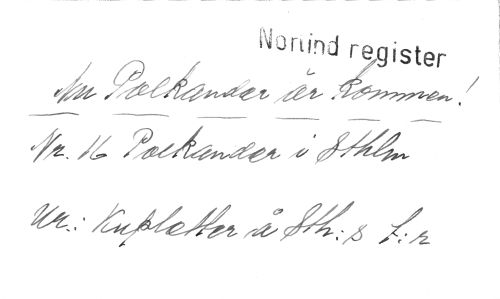 Norlind register
Nu Polkander är kommen!
Nr. 16 Polkander i Sthlm
Ur.: Kupletter å Sth:s T:r